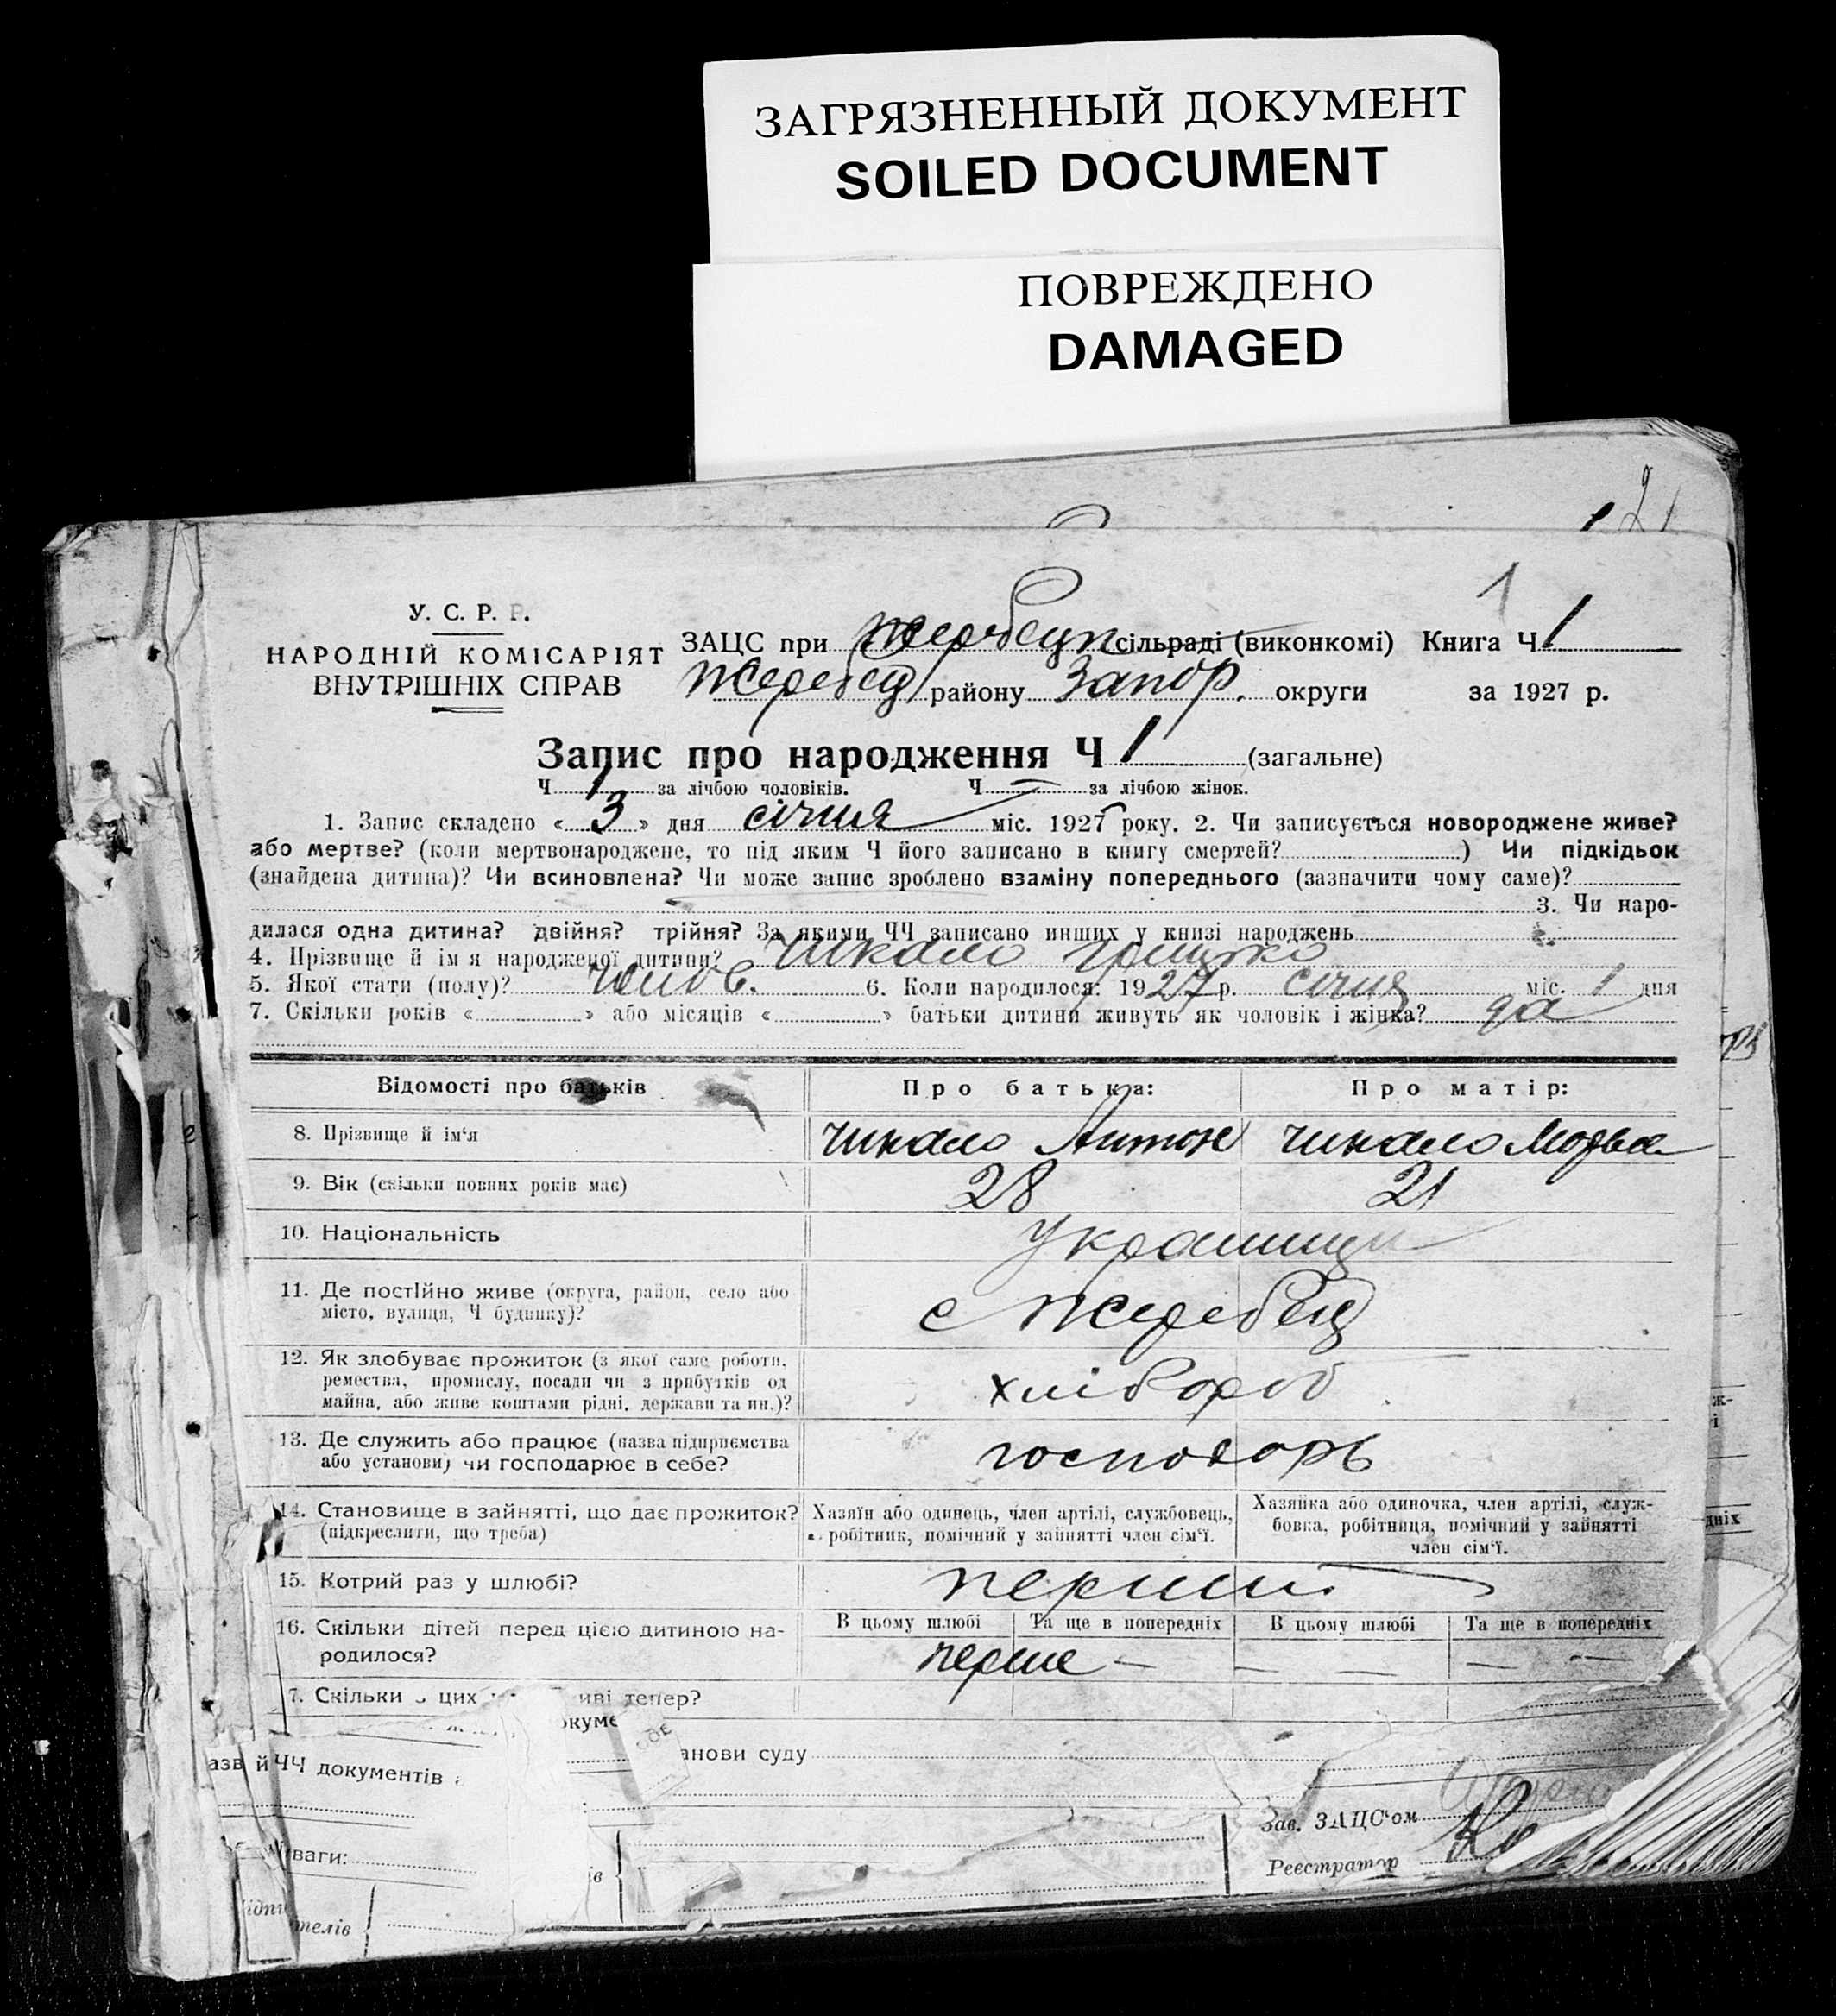 ЗАГРЯЗНЕННЫЙ ДОКУМЕНТ
SOILED DOCUMENT
ПОВРЕЖДЕНО
DAMAGED
21
1
У. С. Р. Р.
НАРОДНІЙ КОМІСАРІЯТ
ВНУТРІШНІХ СПРАВ
ЗАЦС при сільраді (виконкомі) Книга Ч 1
Жеребец району Запор. округи за 1927 р.
Запис про народження Ч 1 (загальне)
Ч 1 за лічбою чоловіків. Ч — за лічбою жінок.
1. Запис складено « 3 » дня січня міс. 1927 року. 2. Чи записується новороджене живе?
або мертве? (коли мертвонароджене, то під яким Ч його записано в книгу смертей? ) Чи підкідьок
(знайдена дитина)? Чи всиновлена? Чи може запис зроблено взаміну попереднього (зазначити чому саме)?
3. Чи наро-
дилася одна дитина? двійня? трійня? За якими ЧЧ записано инших у книзі народжень
4. Прізвище й ім я народженої дитини? Чикало Грицько
5. Якої стати (полу)? чолов. 6. Коли народилося: 1927 р. січня міс. 1 дня
7. Скільки років « » або місяців « » батьки дитини живуть як чоловік і жінка? да
Відомості про батьків Про батька: Про матір:
8. Прізвище й ім‘я Чикало Антон Чикало
9. Вік (скільки повних років має) 28 21
10. Національність
11. Де постійно живе (округа, район, село або
місто, вулиця, Ч будинку)? с Жеребец
12. Як здобуває прожиток (з якої саме роботи,
ремества, промислу, посади чи з прибутків од
майна, або живе коштами рідні, держави та ин.)? хлібороб
13. Де служить або працює (назва підприємства
або установи) чи господарює в себе? господарь
14. Становище в зайнятті, що дає прожиток?
(підкреслити, що треба)
Хазяїн або одинець, член артілі, службовець,
робітник, помічний у зайнятті член сім‘ї.
Хазяйка або одиночка, член артілі, служ-
бовка, робітниця, помічний у зайнятті
член сім‘ї.
15. Котрий раз у шлюбі?
16. Скільки дітей перед цією дитиною на-
родилося?
В цьому шлюбі Та ще в попередніх В цьому шлюбі Та ще в попередніх
перше — — — — —
7. Скільки з цих иві тепер?
окуме
анови суду
азв й ЧЧ документів
Зав. ЗАЦС‘ом
ваги:
Реєстратор
ідпи
телів